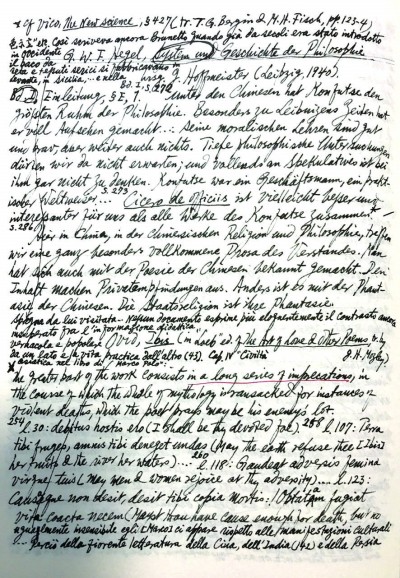 cf Vico The New Science, § 427 (tr. T. G. Bergin & M. H. Fisch, pp. 123-4)
Così scriveva ancora Brunetto quando già da secoli era stato introdotto
in Occidente G. W. F. Hegel, System und Geschichte der Philosophie
il baco da
seta e reputati serici si fabbricavano
levante, in Sicilia... e nella hrsg. J. Hoffmeister (Leipzig, 1940).
Bd. I S. 272
Einleitung, § E, 1. Unter den Chinesen hat Konfutse den
größten Ruhm der Philosophie. Besonders zu Leibnizens Zeiten hat
er viel Aufsehen gemacht...: seine moralischen Lehren sind gut
und brav, aber weiter auch nichts. Tiefe philosophische Untersuchungen
dürfen wir da nicht erwarten; und vollends an Spekulatives ist bei
ihm gar nicht zu denken. Konfutse war ein Geschäftsmann, ein prakt-
ischer Weltweiser... S. 273 Cicero de officiis ist vielleicht besser und
interessanter für uns als alle Werke des Konfutse zusammen! —
S. 286
Hier in China, in der chinesischen Religion und Philosophie, treffen
wir eine ganz besonders vollkommene Prosa des Verstandes. Man
hat sich auch mit der Poesie der Chinesen bekannt gemacht. Den
Inhalt machen Privatempfindungen aus. Anders ist es mit der Phant-
asie der Chinesen. Die Staatsreligion ist ihre Phantasie.
da lui visitata. Nessun documento esprime più eloquentemente il contrasto ancora
insuperato fra l'"informazione direttiva"
vernacola e popolare Ovid, Ibis. (in Loeb ed. of The Art of Love & Other Poems tr. by
da un lato e la vita practica dall'altro (43). Cap. IV "Civiltà J. H. Mozley)
asiatica nel libro di "Marco Polo":
The greater part of the work consists in a long series of imprecations, in
the course of which the whole of mythology is ransacked for instances of
violent deaths, which the poet prays may be his enemy's lot.
254 l. 30: debitus hostis ero (I shall be thy devoted foe) 258 l. 107: Terra
tibi fruges, amnis tibi deneget undas (May the earth refuse thee [Ibis]
her fruits & the river her waters)... 260 l. 118: Gaudeat adversis femina
virque tuis (May men & women rejoice at thy adversity)... l. 123:
Causaque non desit, desit tibi copia mortis: / Optatam fugiat
vita coacta necem (Mayst thou have cause enough for death, but no
ugualmente insensibile egli [Marco] ci appare rispetto alle manifestazioni culturali
... della fiorente letteratura della Cina, dell'India (142) e della Persia